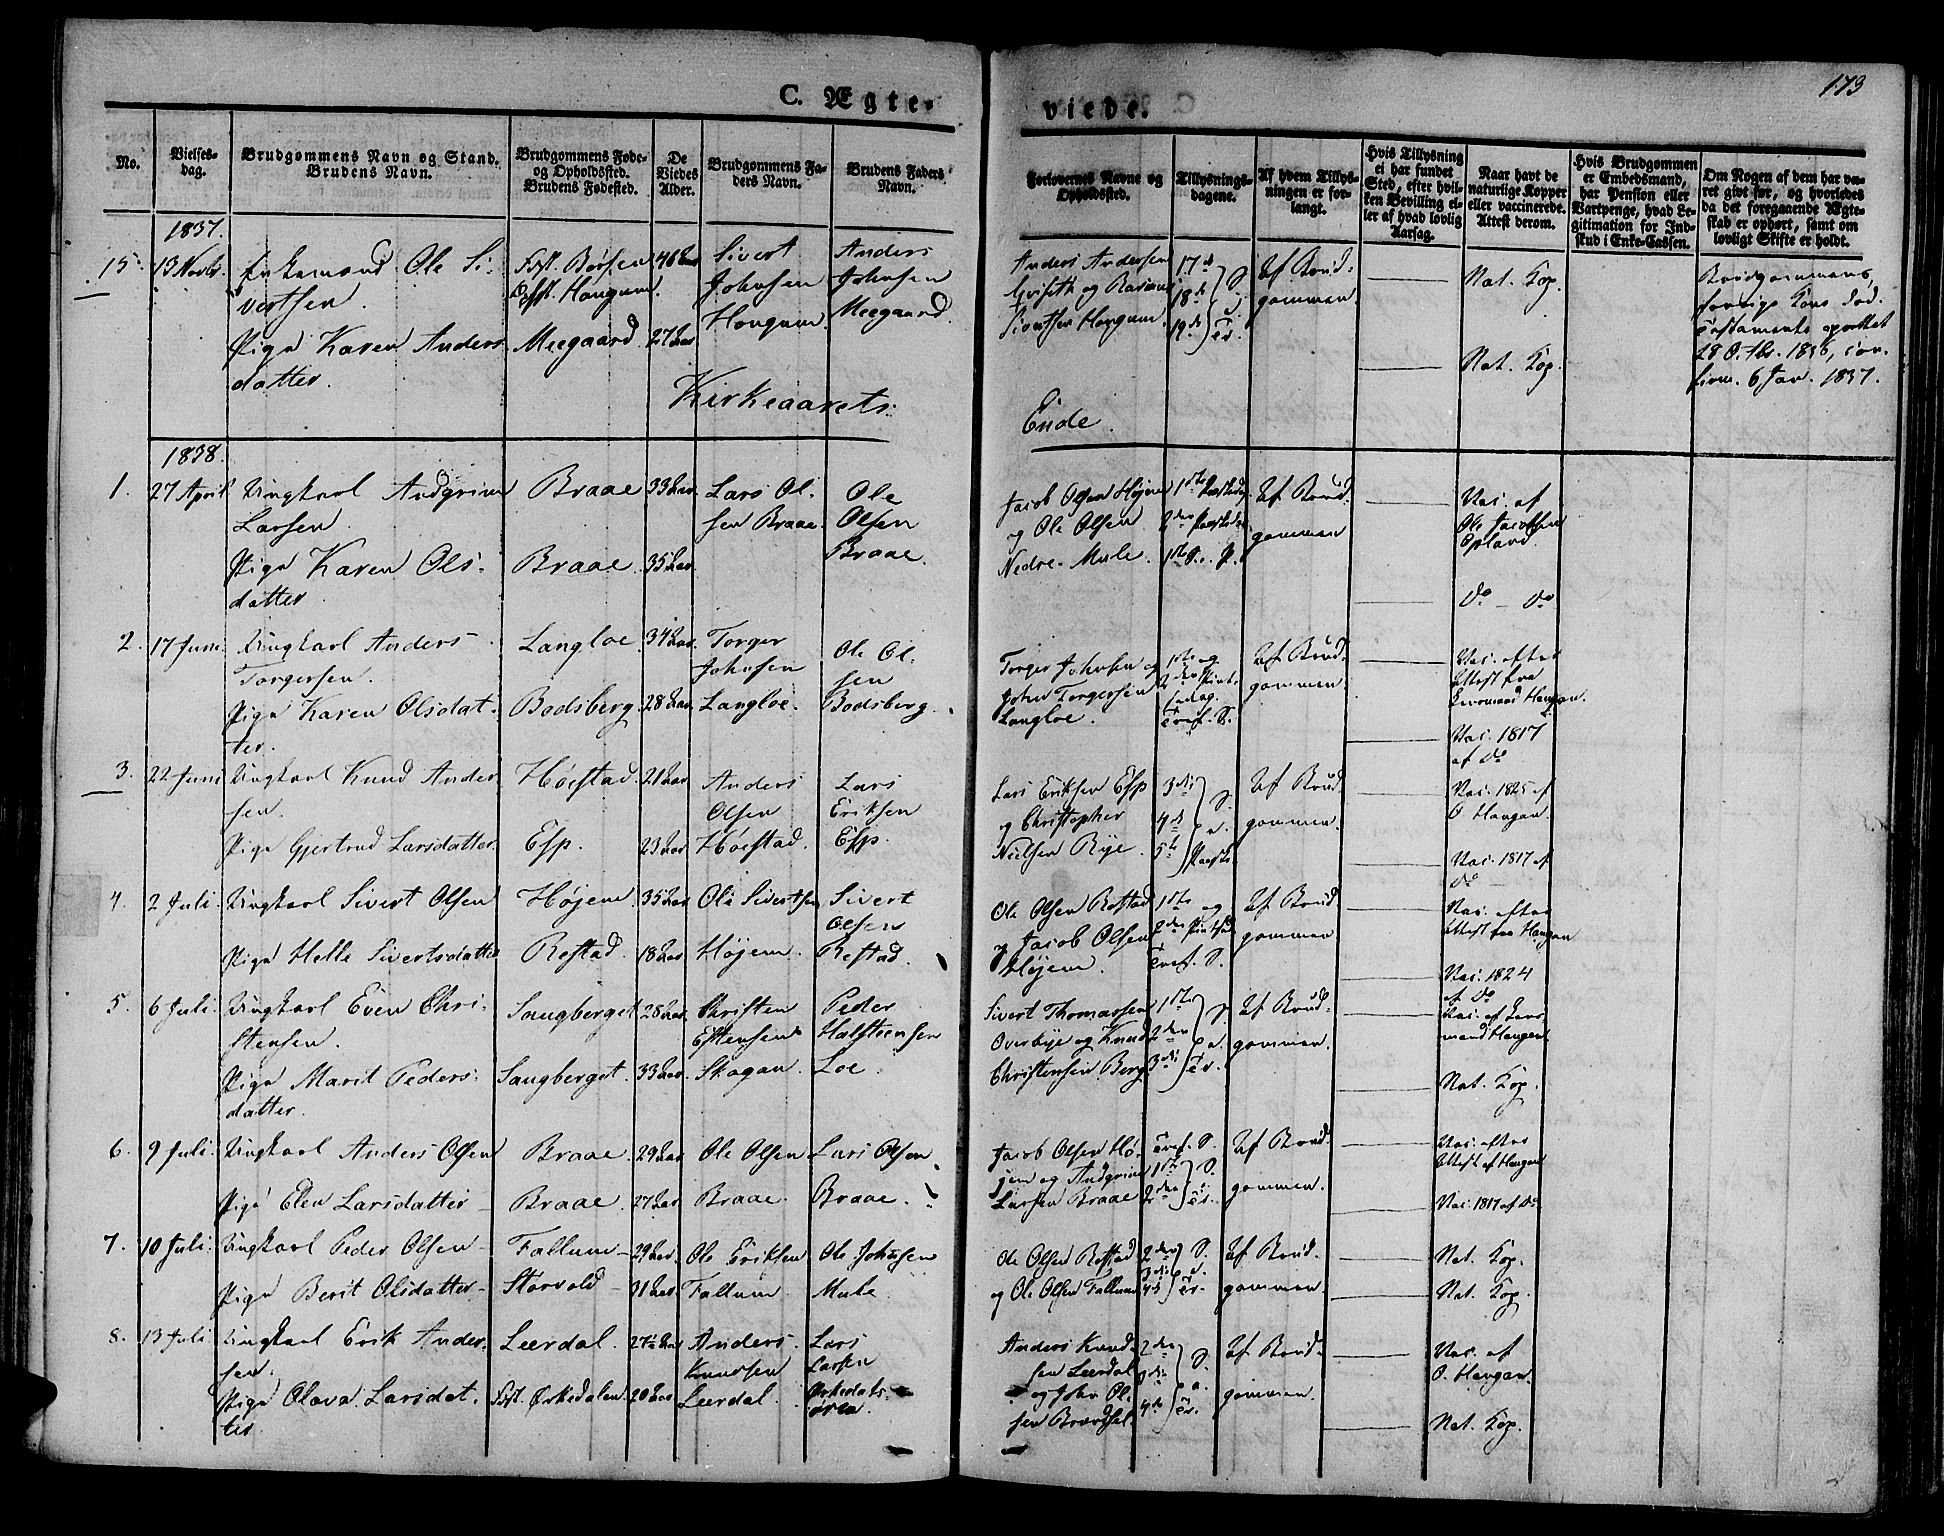 173
C. Ægte-
viede.
No.
Vielses-
dag.
Brudgommens Navn og Stand.
Brudens Navn.
Brudgommens Føde-
og Opholdssted.
Brudens Fødested.
De
Viedes
Alder.
Brudgommens Fa-
ders Navn.
Brudens Faders
Navn.
Forlovernes Navne og
Opholdssted.
Tillysnings-
dagene.
Af hvem Tillys-
ningen er for-
langt.
Hvis Tillysning
ei har fundet
Sted, efter hvil-
ken Bevilling el-
ler af hvad lovlig
Aarsag.
Naar havt de
naturlige Kopper
eller vaccinerede.
Attest derom.
Hvis Brudgommen
er Embedsmand,
har Pension eller
Vartpenge, hvad Le-
gitimation for Ind-
skud i Enke-Cassen.
Om Nogen af dem har væ-
ret givt før, og hvorledes
da det foregaaende Ægte-
skab er ophørt, samt om
lovligt Skifte er holdt.
1837.
15.
13 Novbr.
Enkemand Ole Si-
vertsen.
Pige Karen Anders
datter.
Født. Børsen
Opst. Hougum.
Meegaard
46 Aar
27 Aar
Sivert
Johnsen
Hougum.
Anders
Johnsen
Meegaard.
Anders Andersen
og Rasmus
Sivertsen Hougum.
17de
18de
19de
S.
e.
Tr.
Af Brud-
gommen.
Nat. Kop.
Nat. Kop.
Brudgommens
forrige Kone død.
Testamente oprettet
28 Octbr. 1836, con-
firm. 6 Jan. 1837.
Kirkeaarets
Ende.
1838.
1.
27 April
Ungkarl Andgrim
Larsen.
Pige Karen Ols-
datter.
Braae
Braae.
33 Aar.
35 Aar.
Lars Ol-
sen Braae.
Ole
Olsen
Braae.
Jacob Olsen Højem
og Ole Olsen
Nedre-Mule.
1ste Paaskedag
2den Paaskedag
1ste S. e. P.
Af Brud-
gommen
Vac. af
Ole Jacobsen
Opland.
do - do
2.
17 Juni
Ungkarl Anders
Torgersen.
Pige Karen Olsdat-
ter.
Langloe.
Bodsberg.
34 Aar.
28 Aar.
Torger
Johnsen
Langloe.
Ole Ol-
sen
Bodsberg.
Torger Johnsen og
John Torgersen
Langloe.
1ste og
2den Pint-
sedag.
Tref. S.
Af Brud-
gommen.
Vac. efter
Attest fra
Lensmand Haugan.
Vac. 1817
af do
3.
22 Juni
Ungkarl Knud Ander
sen.
Pige Gjertrud Larsdatter.
Høistad.
Esp.
21 Aar
23 Aar
Anders
Olsen
Høistad.
Lars
Eriksen
Esp.
Lars Eriksen Esp
og Christopher
Nielsen Rye.
3die
4de
5te
S.
e.
Paaske
Af Brud-
gommen.
Vac. 1825 af
O Haugan.
Vac. 1817 af
do
4.
2 Juli.
Ungkarl Sivert Olsen
Pige Helle Sivertsdatter
Højem.
Restad.
35 Aar
18 Aar
Ole Sivertsen
Højem.
Sivert
Olsen
Restad.
Ole Olsen Restad
og Jacob Olsen
Højem.
1ste og
2den Pintsed.
Tref. S.
Af Brud-
gommen
Vac. efter
Attest fra Haugan
Vac. 1824
af do
5.
6 Juli.
Ungkarl Even Chri-
stensen.
Pige Marit Peders-
datter.
Saugberget
Saugberget.
28 Aar
33 Aar.
Christen
Estensen
Skogan.
Peder
Halsteensen
Loe.
Sivert Thomassen
Overbye og Knud
Christensen Berg
1ste
2den
3die
S.
e.
Tr.
Af Brud-
gommen.
Vac. af Lens-
mand Haugan
Nat. Kop.
6.
9 Juli.
Ungkarl Anders Olsen
Pige Elen Larsdatter
Braae.
Braae.
29 Aar
27 Aar
Ole Olsen
Braae.
Lars Olsen
Braae.
Jacob Olsen Hø-
jem og Andgrim
Larsen Braae
Tref. S.
1ste
2den
S.
e.
Tr.
Af Brud
gommen.
Vac. efter
Attest af Haugan
Vac. 1817 af do
7.
10 Juli.
Ungkarl Peder Olsen
Pige Berit Olsdatter
Fallum
Storvold
29 Aar.
31 Aar
Ole Eriksen
Fallum
Ole Johnsen
Mule.
Ole Olsen Restad
og Ole Olsen Fallum
2den
3die
4de
S.
e.
Tr.
Af Brud-
gommen.
Nat. Kop.
Nat. Kop.
8.
13 Juli
Ungkarl Erik Ander-
sen.
Pige Olava Larsdat-
ter
Leerdal.
Født. Ørkedalen.
27½ Aar
20 Aar
Anders
Knudsen
Leerdal.
Lars
Larsen
Ørkedals-
øren.
Anders Knud-
sen Leerdal
og John Ol-
sen
2den
3die
4de
S.
e.
Tr.
Af Brud-
gommen.
Vac. af
O. Haugan.
Nat. Kop.